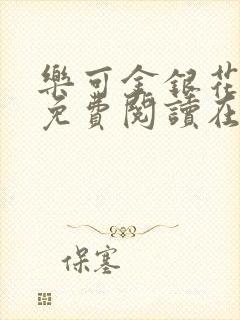 樂可金銀花
免費閱讀在
保塞